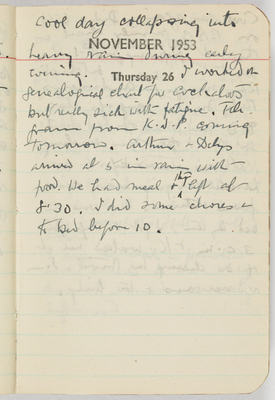 Cool day collapsing into
NOVEMBER 1953
heavy rain during early
evening. I worked on
Thursday 26
genealogical chart for Cockatoos
but really sick with fatigue. Tele
gram from K.S.P. coming
tomorrow. Arthur & Delys
arrived at 5 in rain with
food. We had meal & they left at
8.30. I did some chores &
to bed before 10.